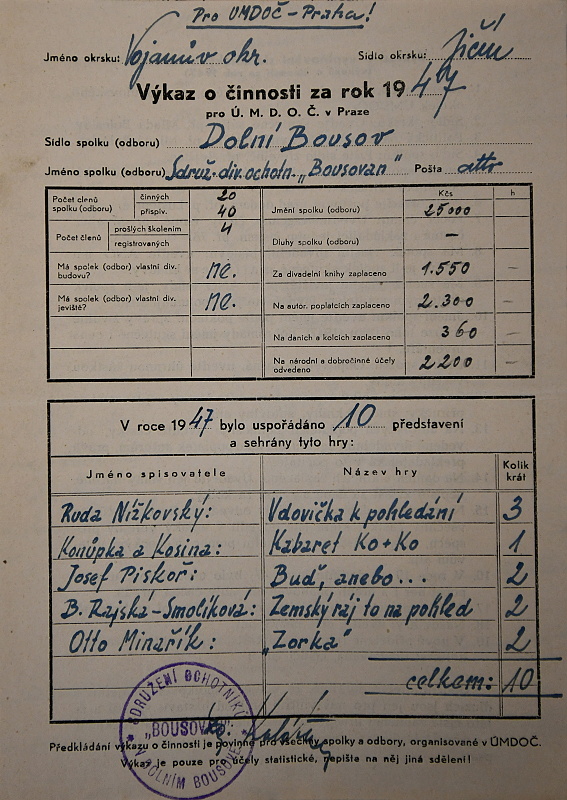 Pro ÚMDOČ-Praha!
Jméno okrsku: Vojanův okr. Sídlo okrsku: Jičín
Výkaz o činnosti za rok 1947
pro Ú. M. D. O. Č. v Praze
Sídlo spolku (odboru) Dolní Bousov
Jméno spolku (odboru) Sdruž. div. ochotn. „Bousovan" Pošta atto
Počet členů spolku (odboru) činných 20
přispív. 40
Počet členů prošlých školením 4
registrovaných
Má spolek (odbor) vlastní div. budovu? ne.
Má spolek (odbor) vlastní div. jeviště? ne.
Kčs h
Jmění spolku (odboru) 25000
Dluhy spolku (odboru) —
Za divadelní knihy zaplaceno 1.550 —
Na autor. poplatcích zaplaceno 2.300 —
Na daních a kolcích zaplaceno 360
Na národní a dobročinné účely odvedeno 2200 —
V roce 1947 bylo uspořádáno 10 představení
a sehrány tyto hry:
Jméno spisovatele Název hry Kolik krát
Ruda Nížkovský: Vdovička k pohledání 3
Konůpka a Kosina: Kabaret Ko+Ko 1
Josef Piskoř: Buď, anebo... 2
B. Rajská-Smolíková: Zemský ráj to na pohled 2
Otto Minařík: „Zorka" 2
celkem: 10
SDRUŽENÍ OCHOTNÍKŮ
„BOUSOVAN"
V DOLNÍM BOUSOVĚ
Předkládání výkazu o činnosti je povinné pro všechny spolky a odbory, organisované v ÚMDOČ.
Výkaz je pouze pro účely statistické, nepište na něj jiná sdělení!